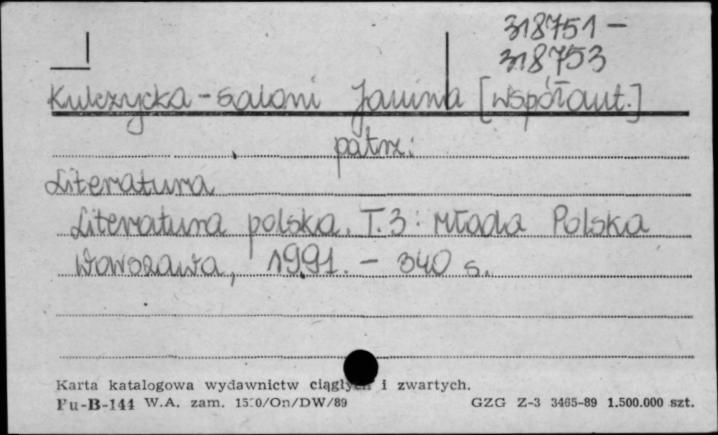 318751 -
318753
Kulczycka-Saloni Janina [współaut.]
patrz:
Literatura
Literatura polska. T.3: Młoda Polska
Warszawa, 1991. - 340 s.
Karta katalogowa wydawnictw ciągłych i zwartych.
Pu-B-144 W.A. zam. 1520/On/DW/89 GZG Z-3 3465-89 1.500.000 szt.